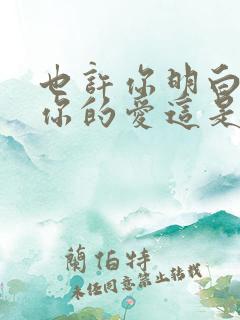 也許你明白
你的愛這是
蘭伯特
未經同意禁止轉載